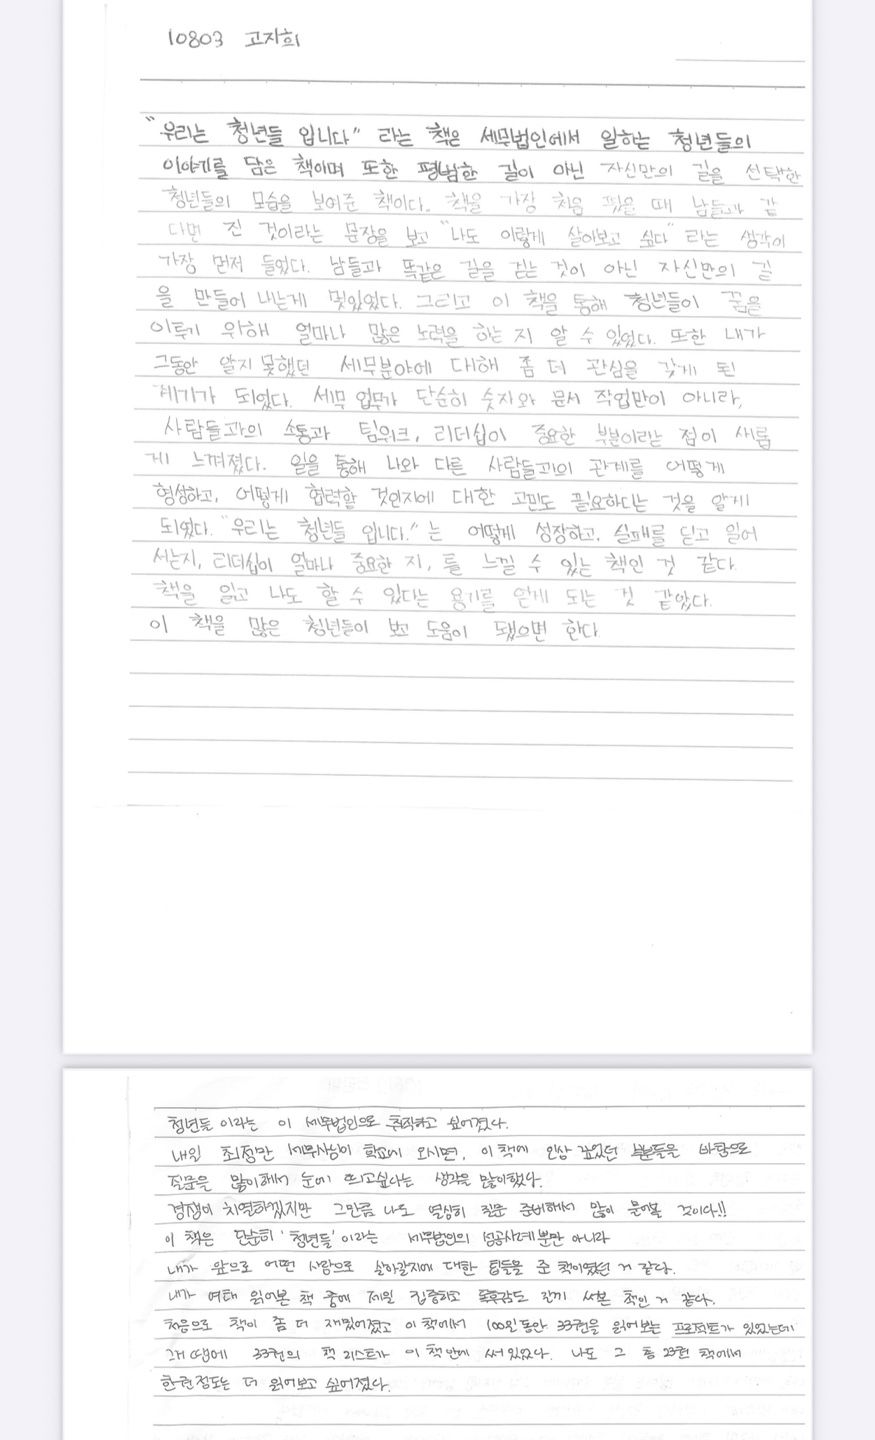 10803 고자희
"우리는 청년들 입니다" 라는 책은 세무법인에서 일하는 청년들의
이야기를 담은 책이며 또한 평범한 길이 아닌 자신만의 길을 선택한
청년들의 모습을 보여준 책이다. 책을 가장 처음 폈을 때 남들과 같
다면 진 것이라는 문장을 보고 "나도 이렇게 살아보고 싶다" 라는 생각이
가장 먼저 들었다. 남들과 똑같은 길을 걷는 것이 아닌 자신만의 길
을 만들어 나는게 멋있었다. 그리고 이 책을 통해 청년들이 꿈을
이루기 위해 얼마나 많은 노력을 하는 지 알 수 있었다. 또한 내가
그동안 알지 못했던 세무분야에 대해 좀 더 관심을 갖게 된
계기가 되었다. 세무 업무가 단순히 숫자와 문서 작업만이 아니라,
사람들과의 소통과 팀워크, 리더십이 중요한 부분이라는 점이 새롭
게 느껴졌다. 일을 통해 나와 다른 사람들과의 관계를 어떻게
형성하고, 어떻게 협력할 것인지에 대한 고민도 필요하다는 것을 알게
되었다. "우리는 청년들 입니다." 는 어떻게 성장하고, 실패를 딛고 일어
서는지, 리더십이 얼마나 중요한 지, 를 느낄 수 있는 책인 것 같다.
책을 읽고 나도 할 수 있다는 용기를 얻게 되는 것 같았다.
이 책을 많은 청년들이 보고 도움이 됐으면 한다
청년들 이라는 이 세무법인으로 취직하고 싶어졌다.
내일 최정만 세무사님이 학교에 오시면, 이 책에 인상 깊었던 부분들을 바탕으로
질문을 많이해서 눈에 띄고싶다는 생각을 많이했다.
경쟁이 치열하겠지만 그만큼 나도 열심히 질문 준비해서 많이 물어볼 것이다!!
이 책은 단순히 '청년들' 이라는 세무법인의 성공사례 뿐만 아니라
내가 앞으로 어떤 사람으로 살아갈지에 대한 팁들을 준 책이였던 거 같다.
내가 여태 읽어본 책 중에 제일 집중하고 독후감도 진끼 써본 책인 거 같다.
처음으로 책이 좀 더 재밌어졌고 이 책에서 100일 동안 33권을 읽어보는 프로젝트가 있었는데
그거 땜에 33권의 책 리스트가 이 책안에 써 있었다. 나도 그 총 33권 책에서
한권 정도는 더 읽어보고 싶어졌다.